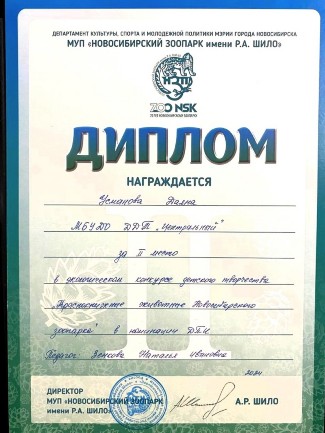 ДЕПАРТАМЕНТ КУЛЬТУРЫ, СПОРТА И МОЛОДЕЖНОЙ ПОЛИТИКИ МЭРИИ ГОРОДА НОВОСИБИРСКА
МУП «НОВОСИБИРСКИЙ ЗООПАРК имени Р.А. ШИЛО»
ZOO NSK
ДИПЛОМ
НАГРАЖДАЕТСЯ
Усманова
МБУДО ДДТ „Центральный"
за II место
в экологическом конкурсе детского творчества
„Краснокнижные животные Новосибирского
зоопарка" в номинации ДПИ
Педагог: Зенкова Наталья Ивановна
2024
ДИРЕКТОР
МУП «НОВОСИБИРСКИЙ ЗООПАРК
имени Р.А. ШИЛО»
А.Р. ШИЛО